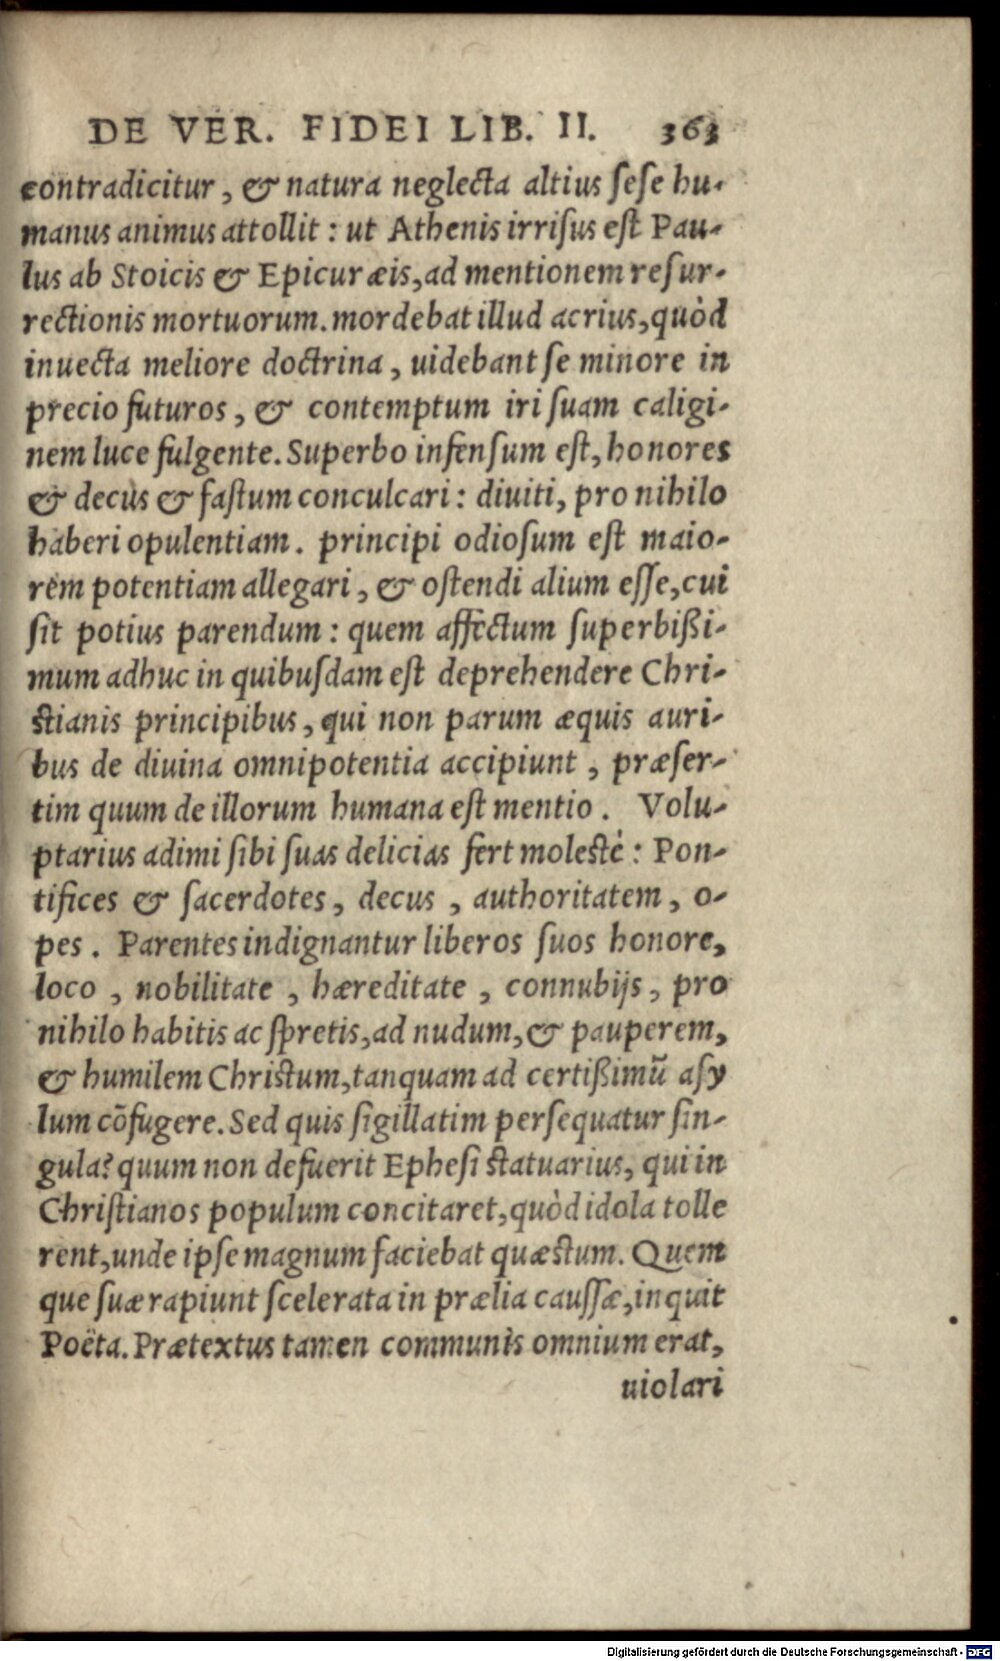 DE VER. FIDEI LIB. II. 363
contradicitur, & natura neglecta altius ſeſe hu-
manus animus attollit: ut Athenis irriſus eſt Pau-
lus ab Stoicis & Epicuræis, ad mentionem reſur-
rectionis mortuorum. mordebat illud acrius, quòd
inuecta meliore doctrina, uidebant ſe minore in
precio futuros, & contemptum iri ſuam caligi-
nem luce fulgente. Superbo infenſum eſt, honores
& decus & faſtum conculcari: diuiti, pro nihilo
haberi opulentiam. principi odioſum eſt maio-
rem potentiam allegari, & oſtendi alium eſſe, cui
ſit potius parendum: quem affectum ſuperbißi-
mum adhuc in quibuſdam eſt deprehendere Chri-
ſtianis principibus, qui non parum æquis auri-
bus de diuina omnipotentia accipiunt, præſer-
tim quum de illorum humana eſt mentio. Volu-
ptarius adimi ſibi ſuas delicias fert moleſtè: Pon-
tifices & ſacerdotes, decus, authoritatem, o-
pes. Parentes indignantur liberos ſuos honore,
loco, nobilitate, hæreditate, connubijs, pro
nihilo habitis ac ſpretis, ad nudum, & pauperem,
& humilem Chriſtum, tanquam ad certißimũ aſy
lum cõfugere. Sed quis ſigillatim perſequatur ſin-
gula? quum non defuerit Epheſi ſtatuarius, qui in
Chriſtianos populum concitaret, quòd idola tolle
rent, unde ipſe magnum faciebat quæſtum. Quem
que ſuæ rapiunt ſcelerata in prælia cauſſæ, inquit
Poëta. Prætextus tamen communis omnium erat,
uiolari
Digitalisierung gefördert durch die Deutsche Forschungsgemeinschaft - DFG